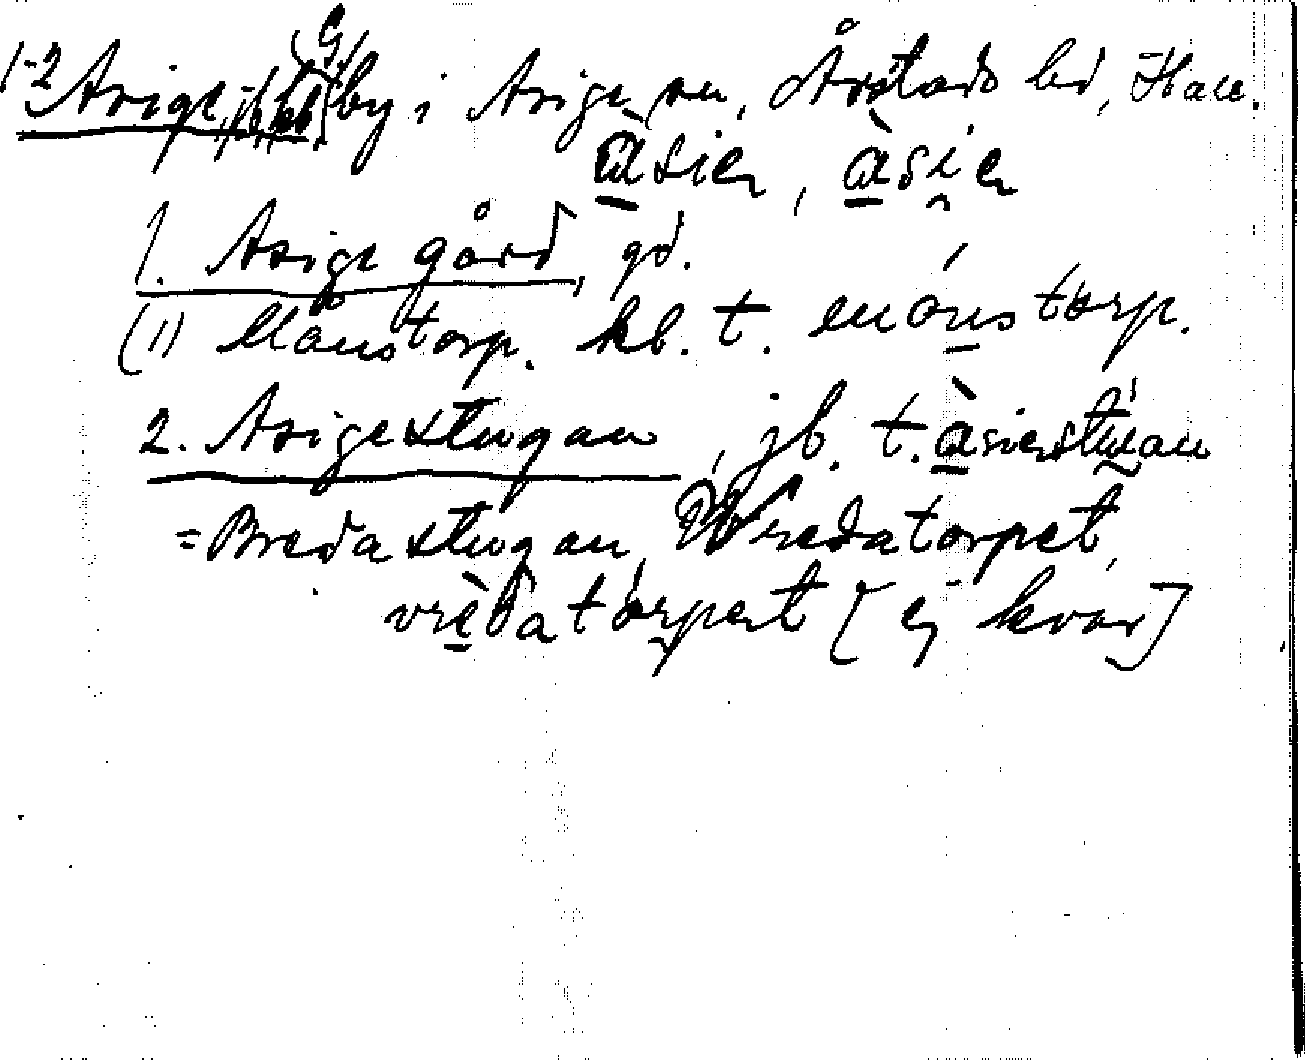 1-2 Asige, by i Asige sn, Årstads hd, Hall.
àsien, àsien
1. Asige gård, gd.
(1) Månstorp. kb. t. månstorp.
2. Asigestugan, jb. t. àsienstuan
= Bredastugan, Wredatorpet,
vrèdatårpet [ej kvar]